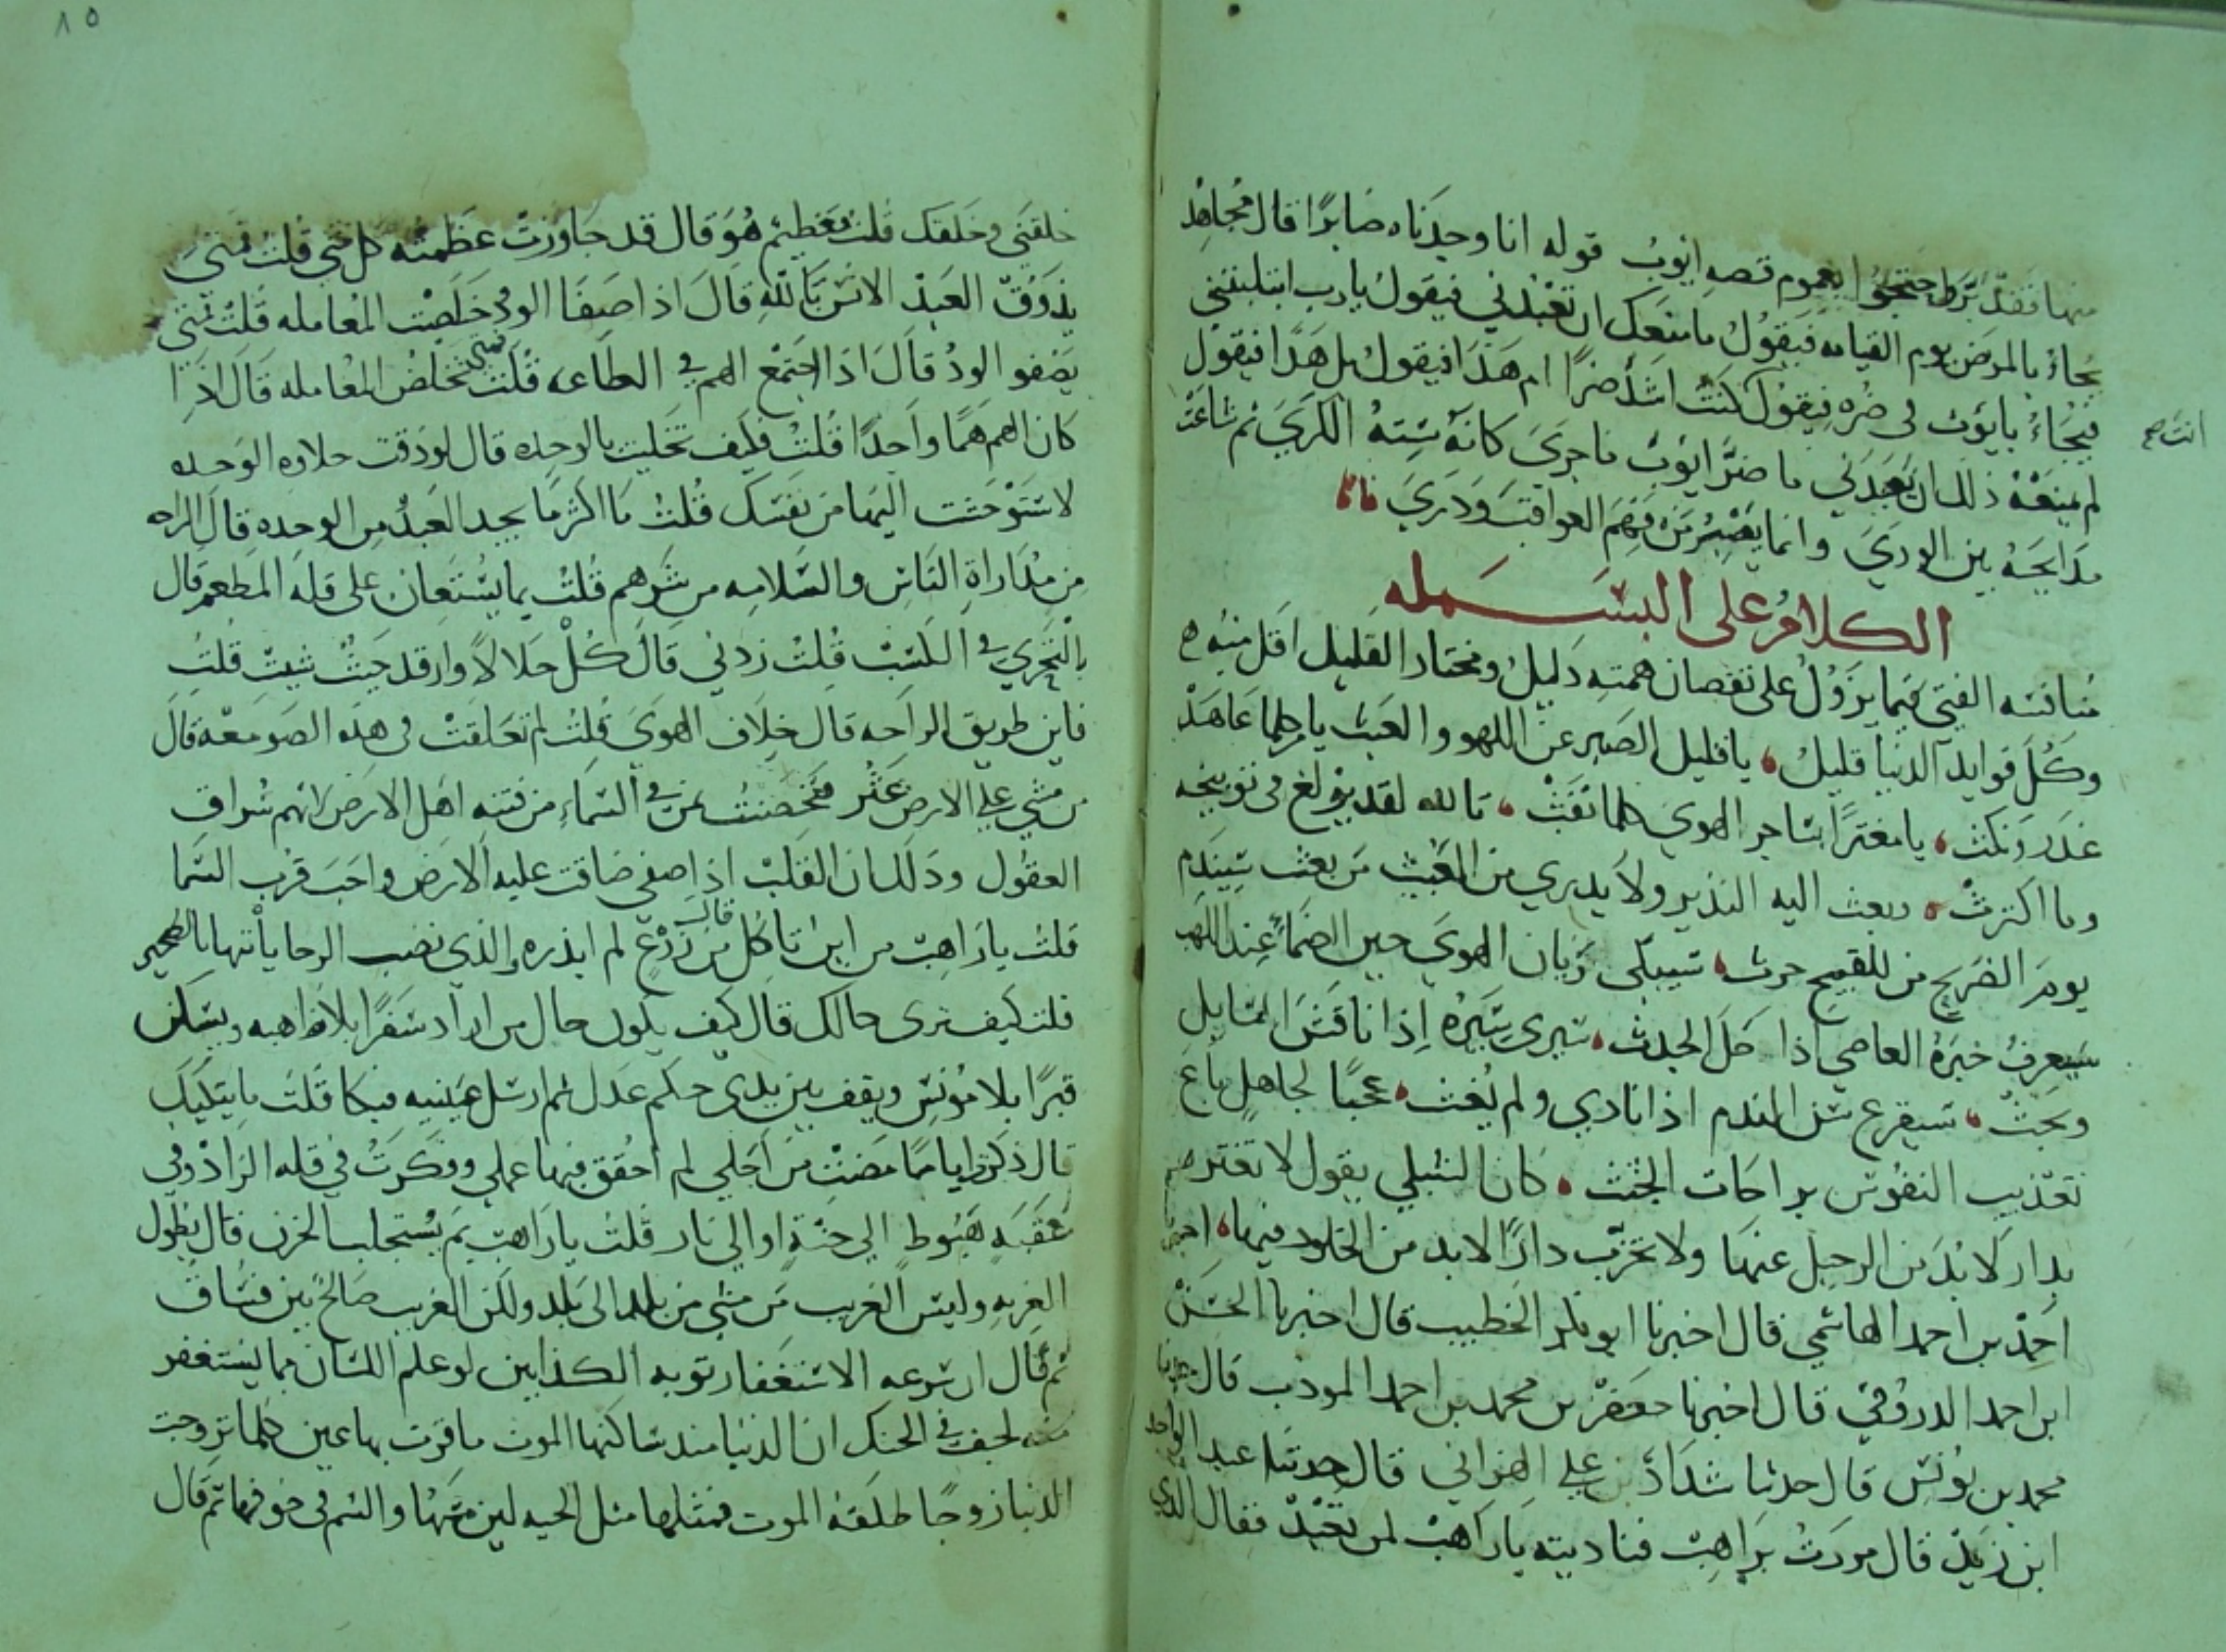 منها فقد برط احتجوا بعموم قصه ايوب قوله انا وجدناه صابرًا قال مجاهد
يجاءُ بالمرضى يوم القيامه فيقولُ ما منعك ان تعبدني فيقول يا رب ابتليتني
فيجاءُ بايوب في ضره فيقول كنت اشد ضرًا ام هذا فيقول بل هذا فيقول
انت صح
لم يمنعه ذلك ان عبدني ما ضر ايوب ما جرى كانه سنة الكرى ثم شاعت
مدايحه بين الورى وانما يصبر من فهم العواقب ودرى
الكلام على البسمله
منافسه الفتى فيما يزول على نقصان همته دليل ومختار القليل اقل منه
وكل فوايد الدنيا قليل، يا قليل الصبر عن اللهو والعبث يا من كلما عاهد
غدر ونكث، يا مغترًا بساحر الهوى كلما نفث، تالله لقد بولغ في توبيخه
وما اكترث، وبعث اليه النذير ولا يدري من المبعث من بعث سيندم
يوم الضريح من للقبيح حرث، سيبكى زمان الهوى حين الظمأ عند اللهث
سيعرف خبره العاصي اذا حل الجدث، سيرى سيره اذا ناقش المسايل
وبحث، سيقرع سن الندم اذا نادى ولم يغث، عجبًا لجاهل باع
تعذيب النفوس براحات الجثث، كان الشبلي يقول لا تغتر
بدار لا بد من الرحيل عنها ولا تخرب دارًا لابد من الخلود فيها،
احمد بن احمد الهاشمي قال اخبرنا ابو بكر الخطيب قال اخبرنا الحسن
ابن احمد الدروقي قال اخبرنا جعفر بن محمد بن احمد المودب قال
محمد بن يونس قال حدثنا شداد بن علي الهزاني قال حدثنا عبد الواحد
ابن زيد قال مررت براهب فناديته يا راهب لمن تعبد فقال الذي
٨٥
خلقني وخلقك قلت فعظيم هو قال قد جاوزت عظمته كل شي قلت فمتى
يذوق العبد الانس بالله قال اذا صفا الود وخلصت المعامله قلت فمتى
يصفو الود قال اذا اجتمع الهم في الطاعه قلت متى تخلص المعامله قال اذا
كان الهم همًا واحدًا قلت فكيف تخليت بالوحده قال لو ذقت حلاوه الوحده
لاستوحشت اليها من نفسك قلت ما اكثر ما يجد العبد من الوحده قال الراحه
من مداراة الناس والسلامه من شرهم قلت بما يستعان على قله المطعم قال
بالتحري في المكسب قلت زدني قال كل حلالاً وارقد حيث شيت قلت
فاين طريق الراحه قال خلاف الهوى قلت لم تعلقت في هذه الصومعه قال
من مشى على الارض عثر فتحصنت بمن في السماء من فتنه اهل الارض لانهم سراق
العقول وذلك ان القلب اذا صفى ضاقت عليه الارض واحب قرب السما
قلت يا راهب من اين تاكل قال من زرع لم ابذره والذي نصب الرحا ياتيها بالطحين
قلت كيف ترى حالك قال كيف يكون حال من اراد سفرًا بلا اهبه ويسكن
قبرًا بلا مونس ويقف بين يدي حكم عدل ثم ارسل عينيه فبكا قلت ما يبكيك
قال ذكرت ايامًا مضت من اجلي لم احقق فيها عملي وفكرت في قله الزاد وفي
عقبه هبوط الي جنة او الي نار قلت يا راهب بم يستجلب الحزن قال بطول
الغربه وليس الغريب من مشى من بلد الى بلد ولكن الغريب صالح بين فساق
ثم قال ان سرعه الاستغفار توبه الكذابين لو علم اللسان مما يستغفر
منه لجف في الحنك ان الدنيا منذ ساكنها الموت ما قرت بها عين كلما تزوجت
الدنيا زوجًا طلقه الموت فمثلها مثل الحيه لين مسها والسم في جوفها ثم قال